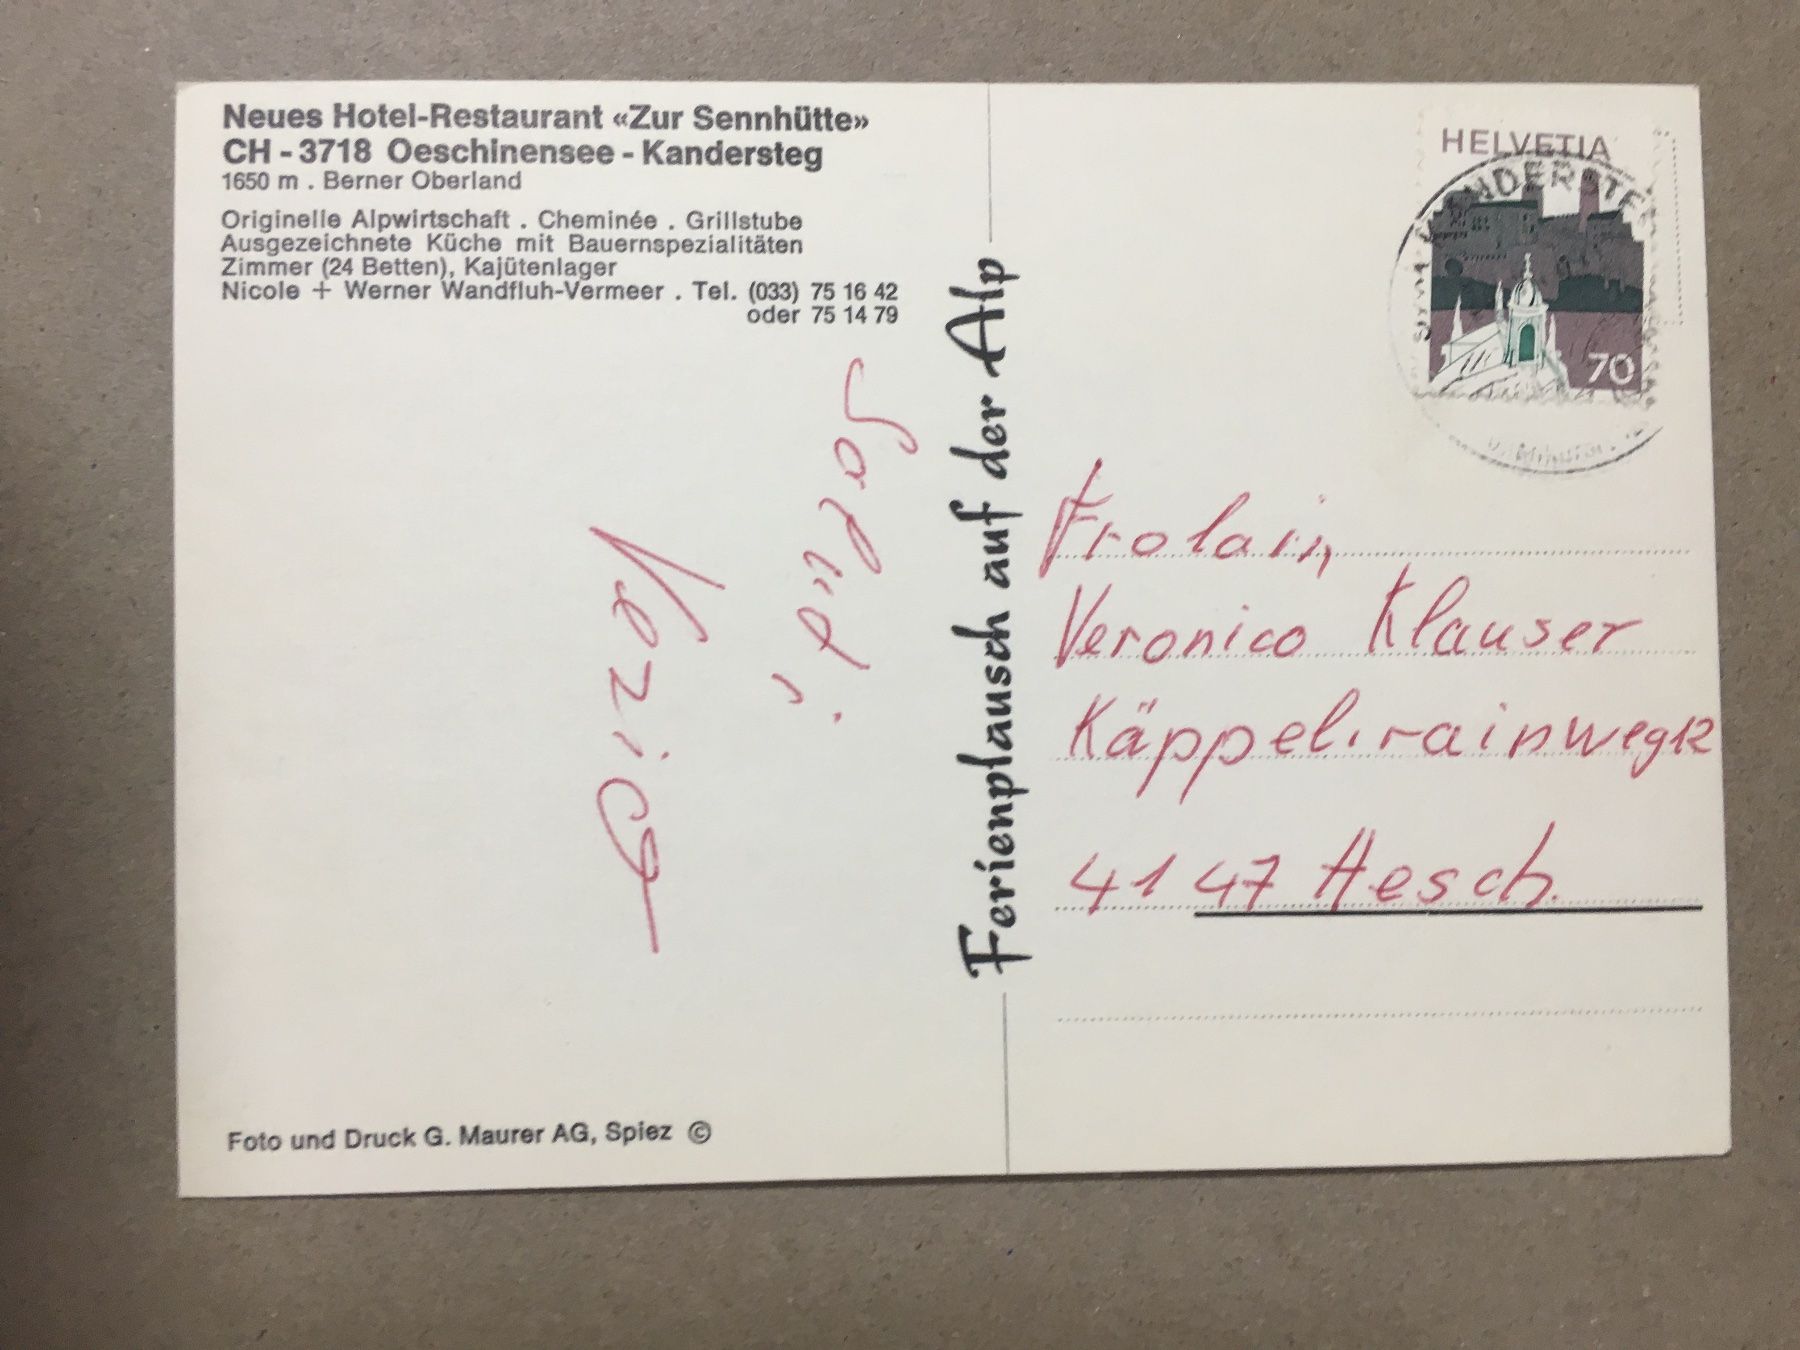 Neues Hotel-Restaurant «Zur Sennhütte»
CH - 3718 Oeschinensee - Kandersteg
1650 m . Berner Oberland
Originelle Alpwirtschaft . Cheminée . Grillstube
Ausgezeichnete Küche mit Bauernspezialitäten
Zimmer (24 Betten), Kajütenlager
Nicole + Werner Wandfluh-Vermeer . Tel. (033) 75 16 42
oder 75 14 79
Foto und Druck G. Maurer AG, Spiez ©
Ferienplausch auf der Alp
HELVETIA
70
Frolain
Veronico Klauser
Käppelirainweg 12
4147 Aesch.